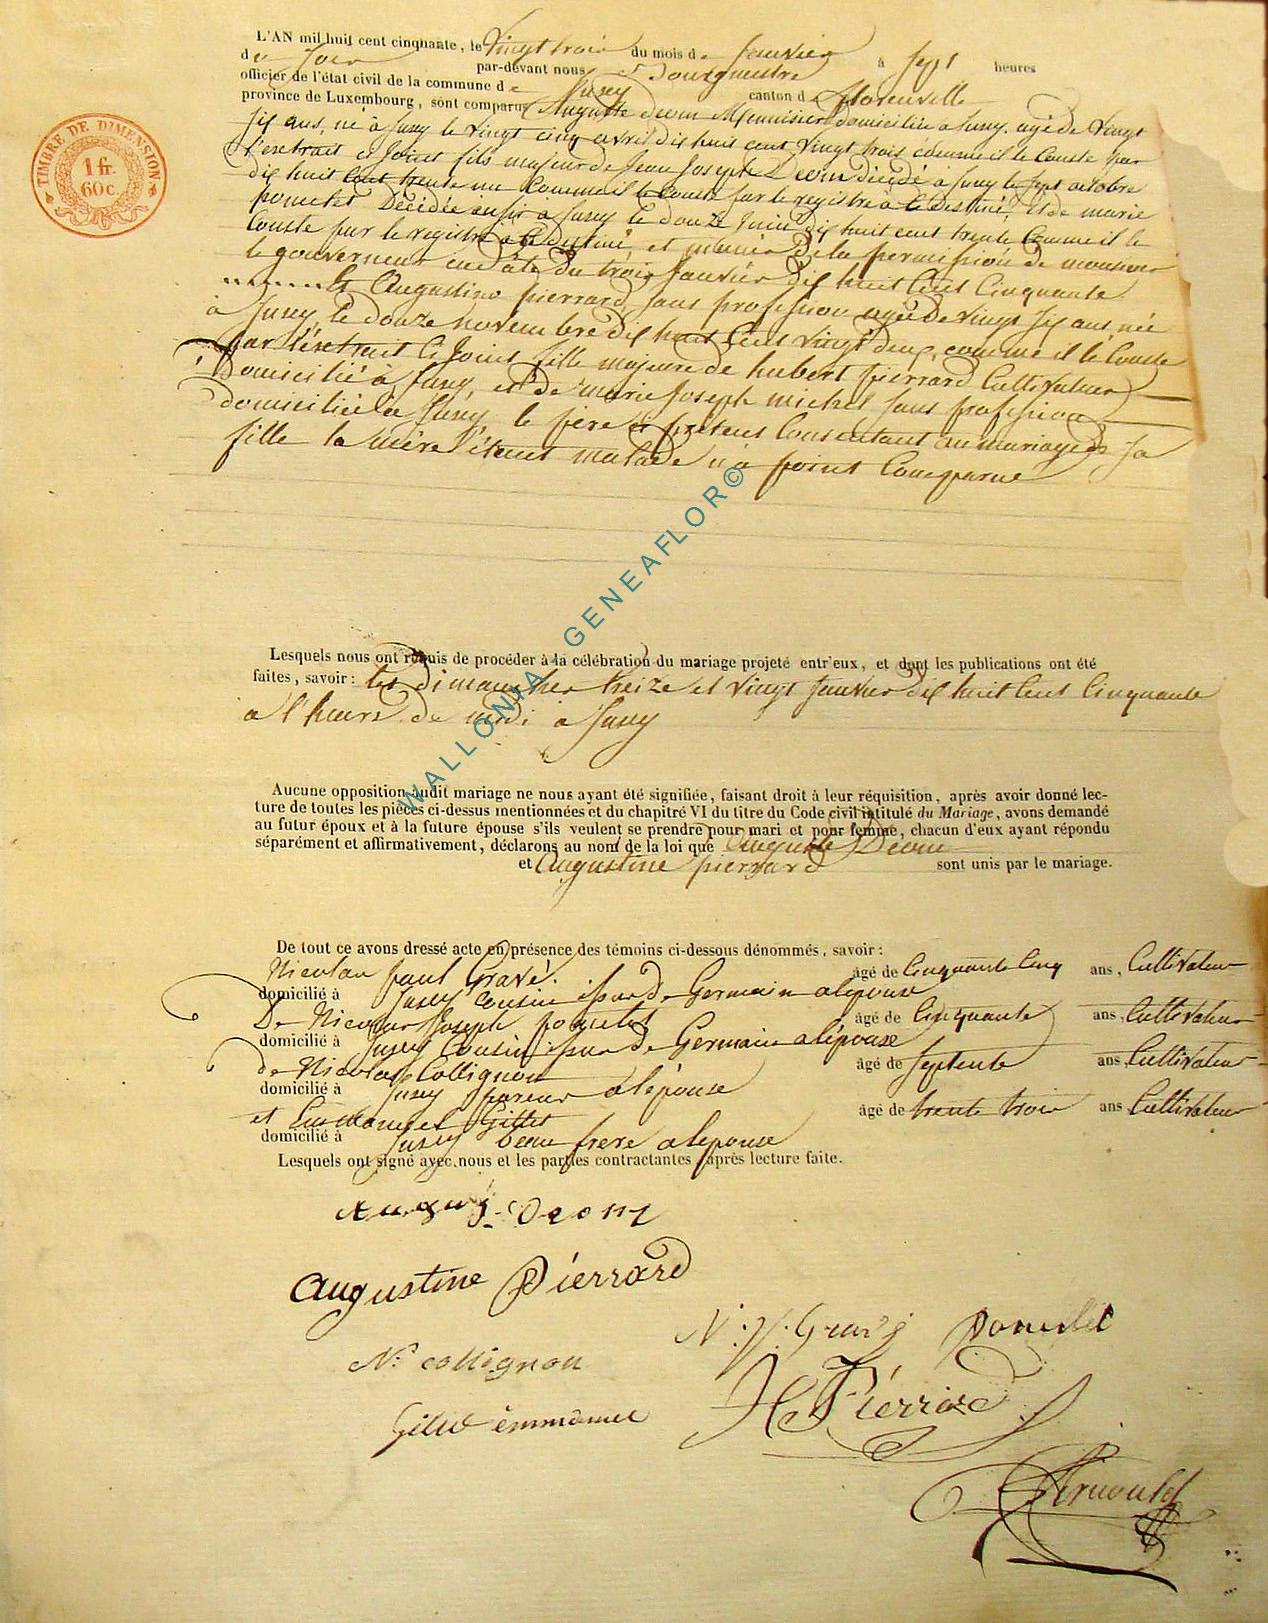 TIMBRE DE DIMENSION
1 fr.
60c.
L'AN mil huit cent cinquante, le vingt trois du mois de Janvier à sept heures
du soir par-devant nous
officier de l'état civil de la commune de Jusey canton de florenville
province de Luxembourg, sont comparus Auguste Deom Menuisier domicilié a Jusey, agé de vingt
six ans, né à Jusey le vingt cinq avril dix huit cent vingt trois comme il le Conste par
l'extrait ci Joint fils majeur de Jean Joseph Deom décédé a Jusey le sept octobre
dix huit Cent trente un Comme il le Conste par le registre à Ce destiné, et de marie
poncelet Décédée aussi à Jusey le douze Juin dix huit cent trente Comme il le
Conste par le registre a Ce destiné, et muni de la permission de monsieur
le gouverneur en date du trois Janvier dix huit Cent Cinquante
et Augustine pierrard sans profession agée de vingt sept ans née
à Jusey le douze novembre dix huit Cent vingt deux, comme il le Conste
par l'extrait Ci Joint fille majeure de hubert pierrard Cultivateur
Domicilié à Jusey, et de marie Joseph michel sans profession
domiciliée a Jusey le père ci présent Consentant au mariage de sa
fille la mère étant malade n'a point Comparue
Lesquels nous ont requis de procéder à la célébration du mariage projeté entr'eux, et dont les publications ont été
faites, savoir : les dimanches treize et vingt Janvier dix huit Cent Cinquante
a l'heure de midi à Jusey
Aucune opposition audit mariage ne nous ayant été signifiée, faisant droit à leur réquisition, après avoir donné lec-
ture de toutes les pièces ci-dessus mentionnées et du chapitre VI du titre du Code civil intitulé du Mariage, avons demandé
au futur époux et à la future épouse s'ils veulent se prendre pour mari et pour femme, chacun d'eux ayant répondu
séparément et affirmativement, déclarons au nom de la loi que Auguste Deom
et Augustine pierrard sont unis par le mariage.
De tout ce avons dressé acte en présence des témoins ci-dessous dénommés, savoir :
Nicolas paul Gravé âgé de Cinquante Cinq ans, Cultivateur
domicilié à Jusey Cousin issu de Germain a lépouse
De Nicolas Joseph poncelet âgé de Cinquante ans, Cultivateur
domicilié à Jusey Cousin issu de Germain a lépouse
de Nicolas Collignon âgé de septente ans, Cultivateur
domicilié à Jusey parent a lépouse
et Emmanuel Gillet âgé de trente trois ans Cultivateur
domicilié à Jusey beau frere a lepouse
Lesquels ont signé avec nous et les parties contractantes après lecture faite.
August Deom
Augustine Pierrard
N. P. Gravé Poncelet
N. collignon
H Pierrard
Gillet emmanuel
Arnould
WALLONIA GENEAFLOR©